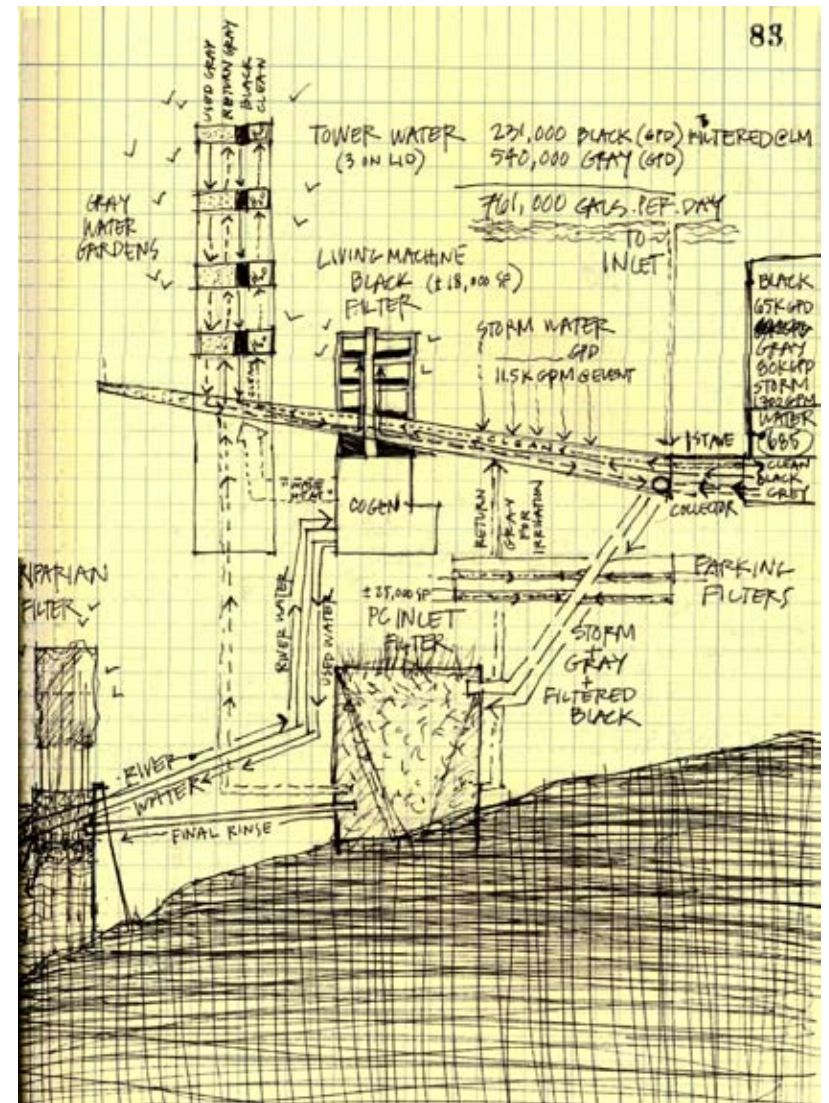 83
USED GRAY
RETURN GRAY
BLACK
CLEAN
TOWER WATER
(3 ON LID)
231,000 BLACK (GPD) FILTERED@LM
540,000 GRAY (GPD)
761,000 GALS. PER. DAY
TO
INLET
GRAY
WATER
GARDENS
LIVING MACHINE
BLACK (±18,000 SF)
FILTER
STORM WATER
GPD
11.5K GPM@EVENT
BLACK
65K GPD
GRAY
80K GPD
STORM
1300 GPM
WATER
685
CLEAN
1 STAVE
CLEAN
BLACK
GREY
COLLECTOR
WASTE
HEAT
COGEN
RETURN
GRAY
FOR
IRRIGATION
PARKING
FILTERS
RIPARIAN
FILTER
RIVER WATER
USED WATER
±25,000 SF
PC INLET
FILTER
STORM
+
GRAY
+
FILTERED
BLACK
RIVER
WATER
FINAL RINSE